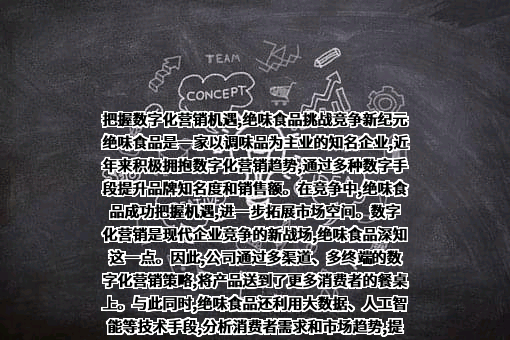 TEAM
CONCEPT
把握数字化营销机遇,绝味食品挑战竞争新纪元
绝味食品是一家以调味品为主业的知名企业,近
年来积极拥抱数字化营销趋势,通过多种数字手
段提升品牌知名度和销售额。在竞争中,绝味食
品成功把握机遇,进一步拓展市场空间。数字
化营销是现代企业竞争的新战场,绝味食品深知
这一点。因此,公司通过多渠道、多终端的数
字化营销策略,将产品送到了更多消费者的餐桌
上。与此同时,绝味食品还利用大数据、人工智
能等技术手段,分析消费者需求和市场趋势,提